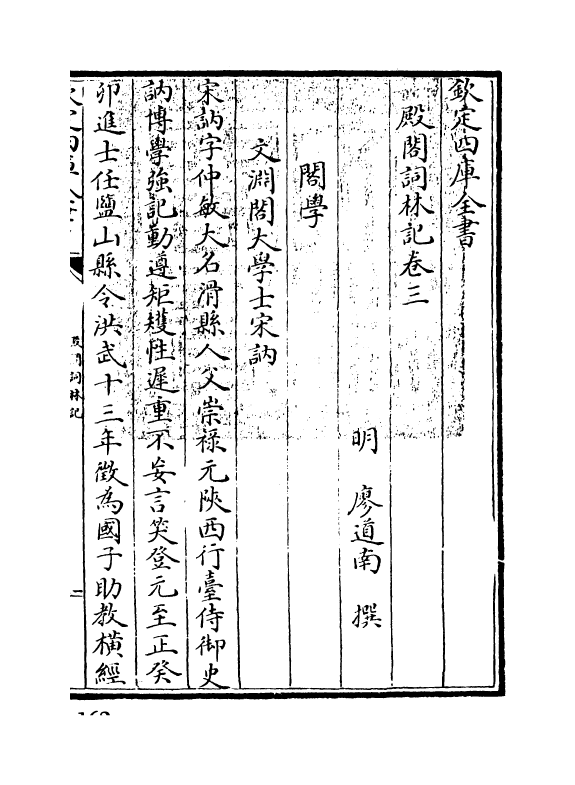 欽定四庫全書
殿閣詞林記卷三
明 廖道南 撰
閣學
文淵閣大學士宋訥
宋訥字仲敏大名滑縣人父崇禄元陜西行臺侍御史
訥博學強記動遵矩矱性遲重不妄言笑登元至正癸
卯進士任鹽山縣令洪武十三年徵為國子助教橫經
殿閣詞林記